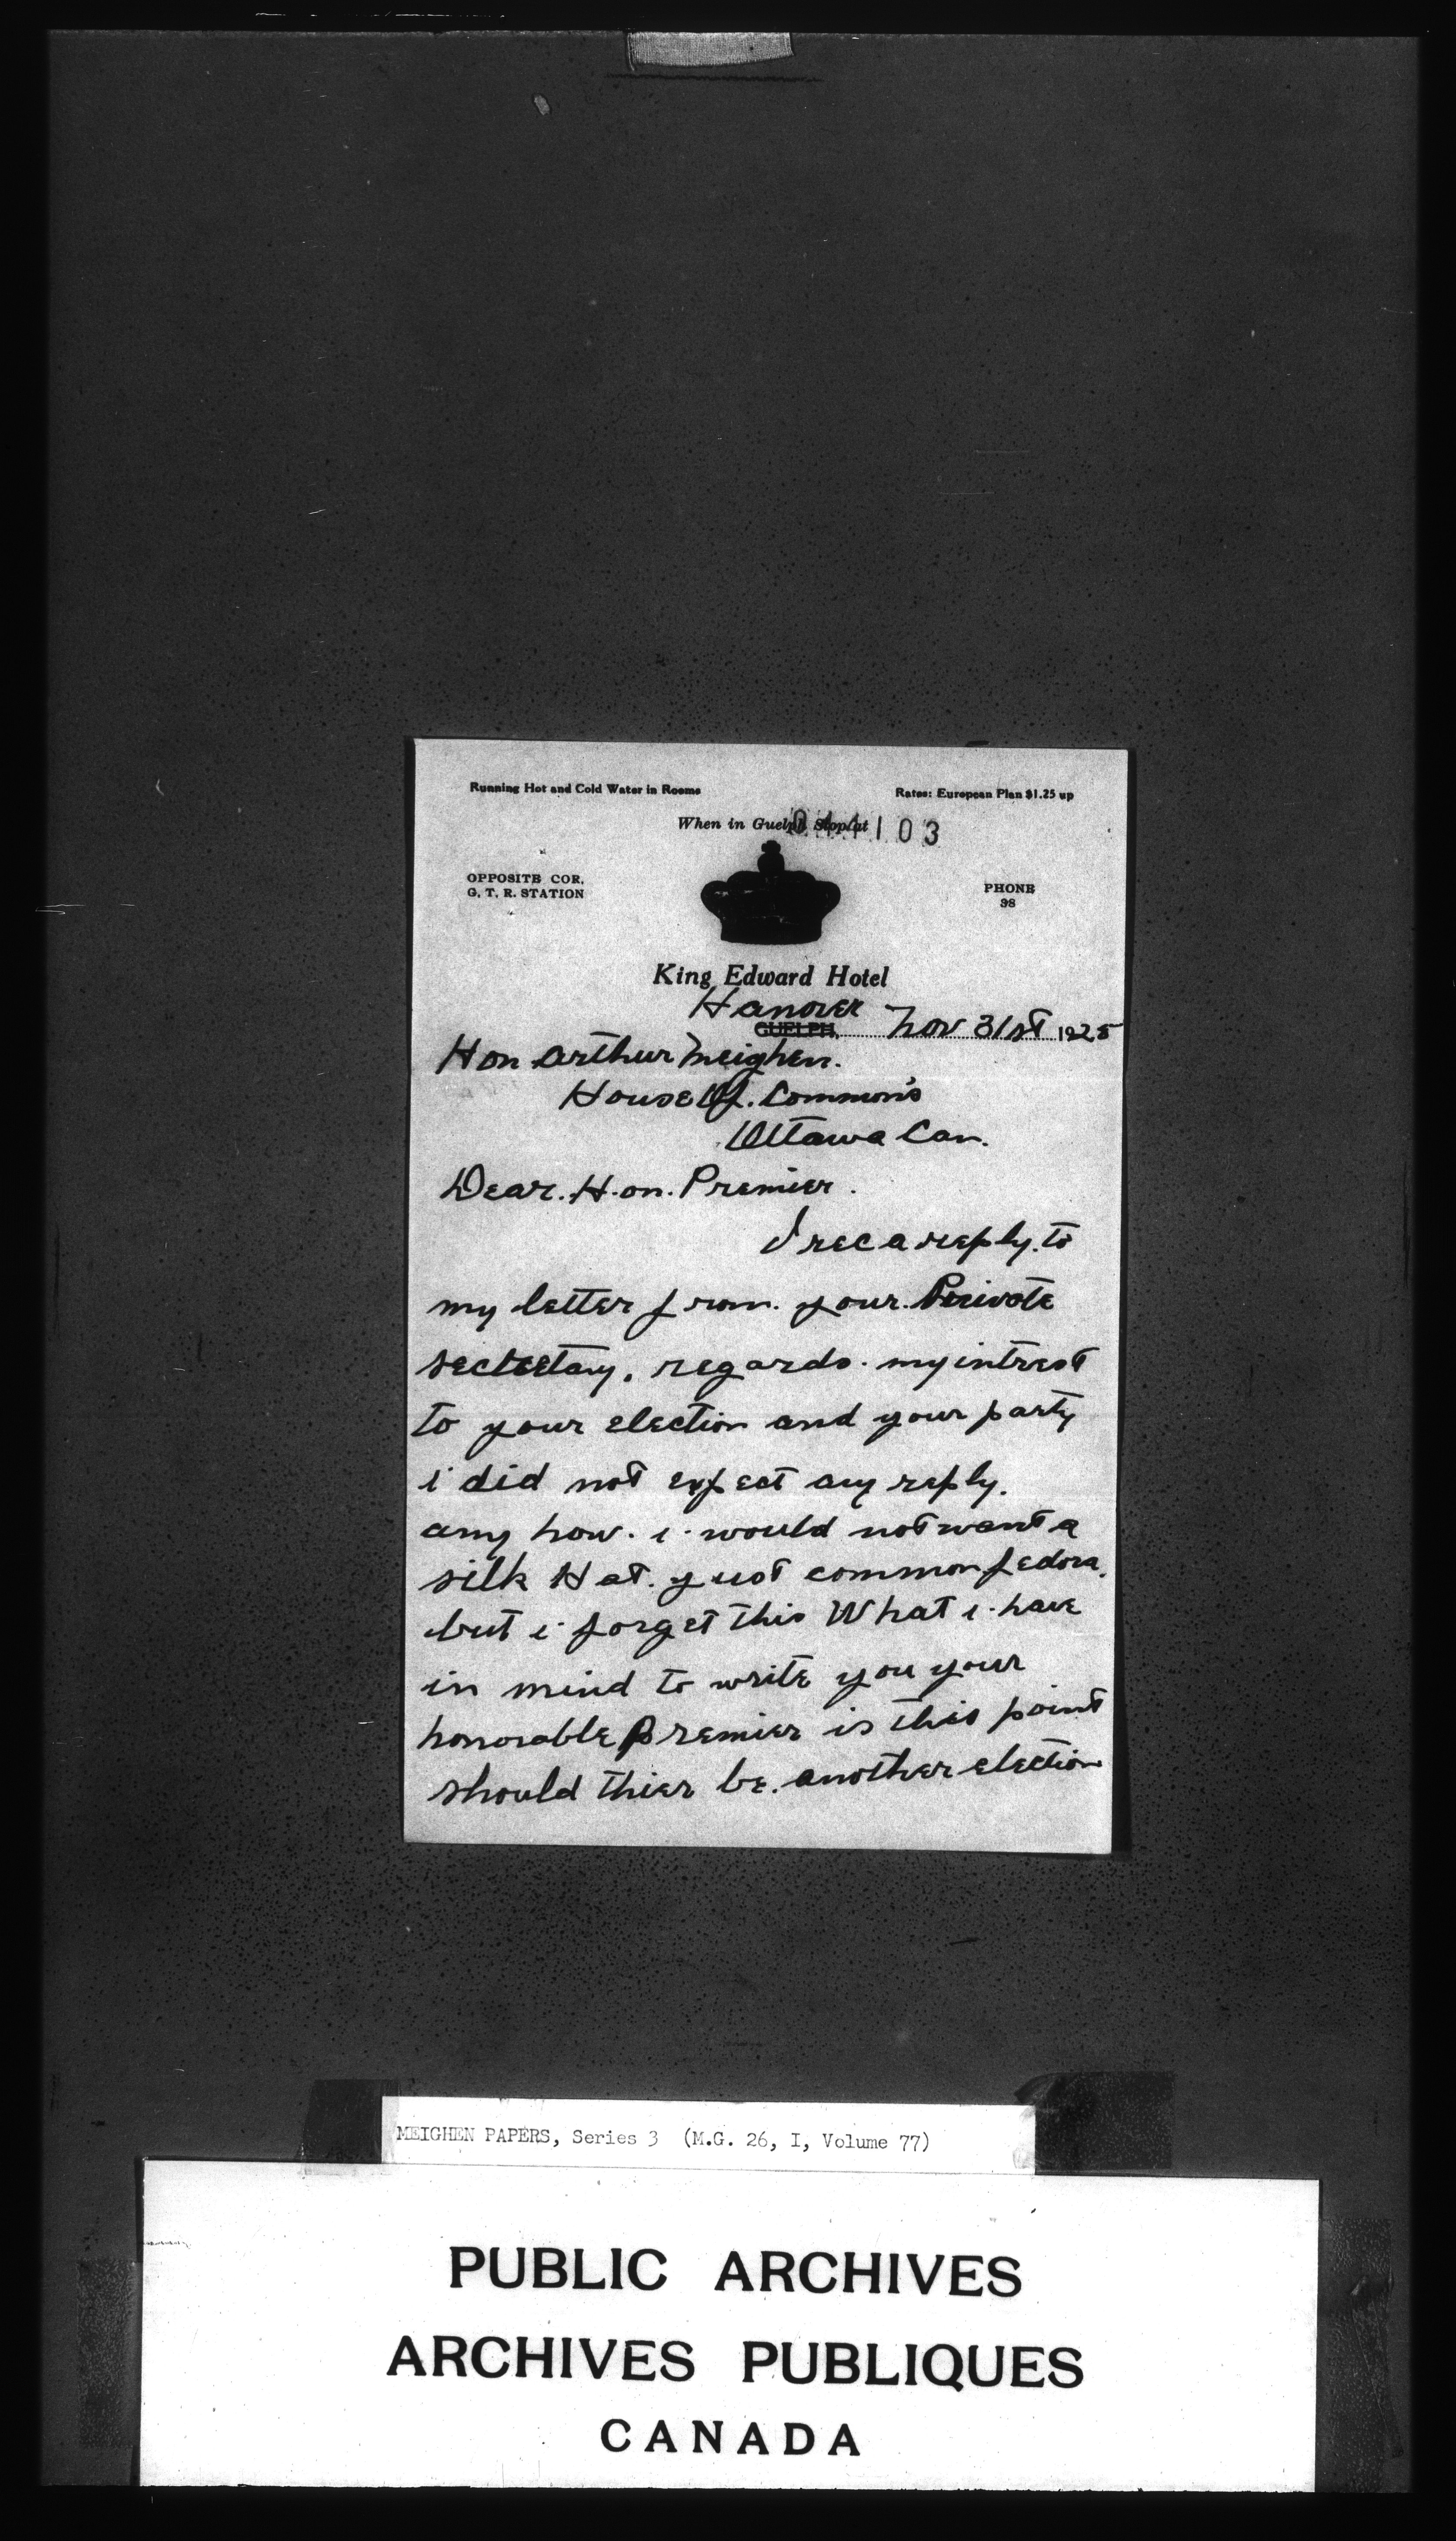 Running Hot and Cold Water in Rooms
Rates: European Plan $1.25 up
When in Guelph Stop at
103
OPPOSITE COR.
G. T. R. STATION
PHONE
98
King Edward Hotel
Hanover
GUELPH, Nov 31st 1925
Hon Arthur Meighen.
House Of. Common's
Ottawa Can.
Dear. Hon. Premier.
I rec a reply. to
my letter from. your. Private
secretary, regards. my intrest
to your election and your party
i did not expect any reply.
any how. i. would not want a
silk Hat. yust common fedora.
but i forget this What i. have
in mind to write you your
honorable Premier is this point
should thier be. another election
MEIGHEN PAPERS, Series 3 (M.G. 26, I, Volume 77)
PUBLIC ARCHIVES
ARCHIVES PUBLIQUES
CANADA